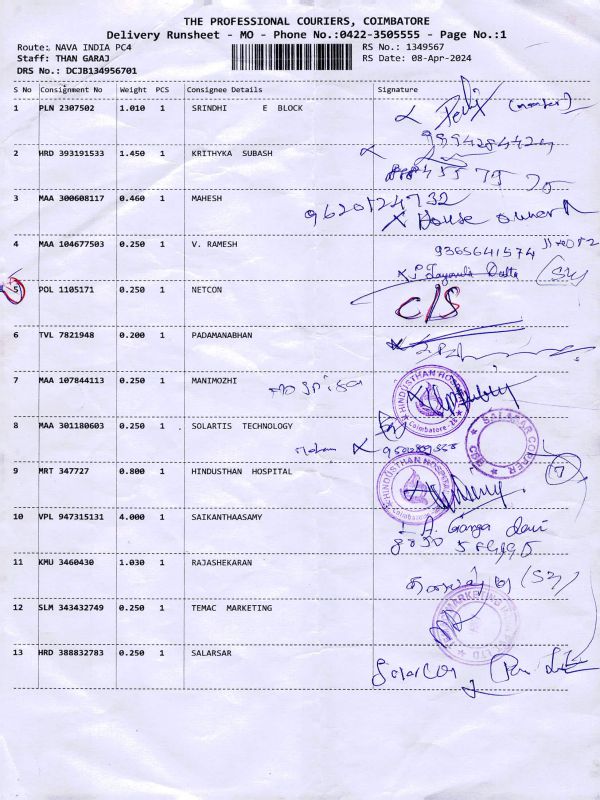 THE PROFESSIONAL COURIERS, COIMBATORE
Delivery Runsheet - MO - Phone No.:0422-3505555 - Page No.:1
Route: NAVA INDIA PC4
RS No.: 1349567
Staff: THAN GARAJ
RS Date: 08-Apr-2024
DRS No.: DCJB134956701
S No Consignment No Weight PCS Consignee Details Signature
1 PLN 2307502 1.010 1 SRINDHI E BLOCK
9894284424
2 HRD 393191533 1.450 1 KRITHYKA SUBASH
3 MAA 300608117 0.460 1 MAHESH
9620124732
X House owner
4 MAA 104677503 0.250 1 V. RAMESH
9365641574
5 POL 1105171 0.250 1 NETCON
C/S
6 TVL 7821948 0.200 1 PADAMANABHAN
7 MAA 107844113 0.250 1 MANIMOZHI
HINDUSTHAN HOSPITAL
Coimbatore - 28
8 MAA 301180603 0.250 1 SOLARTIS TECHNOLOGY
Mohan
SALASAR COPPER
CBE
9 MRT 347727 0.800 1 HINDUSTHAN HOSPITAL
7
HINDUSTHAN HOSPITAL
Coimbatore
10 VPL 947315131 4.000 1 SAIKANTHAASAMY
A. Ganga Devi
11 KMU 3460430 1.030 1 RAJASHEKARAN
12 SLM 343432749 0.250 1 TEMAC MARKETING
MARKETING
LTD
13 HRD 388832783 0.250 1 SALARSAR